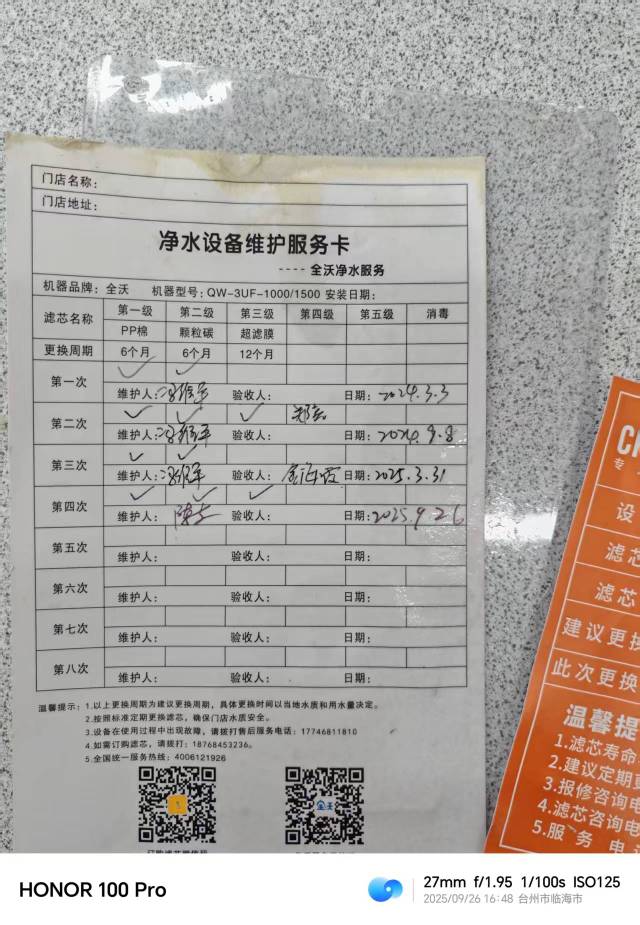 门店名称：
门店地址：
净水设备维护服务卡
---- 全沃净水服务
机器品牌：全沃 机器型号：QW-3UF-1000/1500 安装日期：
滤芯名称 第一级 第二级 第三级 第四级 第五级 消毒
PP棉 颗粒碳 超滤膜
更换周期 6个月 6个月 12个月
第一次 ✓ ✓
维护人： 验收人： 日期：2024.3.3
第二次 ✓ ✓ ✓
维护人： 验收人： 日期：2024.9.8
第三次 ✓ ✓
维护人： 验收人： 日期：2025.3.31
第四次 ✓ ✓ ✓
维护人： 验收人： 日期：2025.9.26
第五次
维护人： 验收人： 日期：
第六次
维护人： 验收人： 日期：
第七次
维护人： 验收人： 日期：
第八次
维护人： 验收人： 日期：
温馨提示：1.以上更换周期为建议更换周期，具体更换时间以当地水质和用水量决定。
2.按照标准定期更换滤芯，确保门店水质安全。
3.设备在使用过程中出现故障，请拨打售后服务电话：17746811810
4.如需订购滤芯，请拨打：18768453236。
5.全国统一服务热线：4006121926
专
设
滤芯
滤芯
建议更换
此次更换
温馨提
1.滤芯寿命
2.建议定期
3.报修咨询
4.滤芯咨询电
5.服务电
HONOR 100 Pro
27mm f/1.95 1/100s ISO125
2025/09/26 16:48 台州市临海市